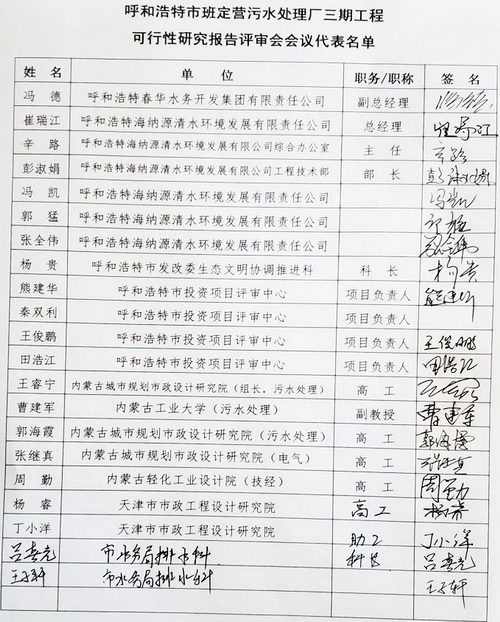 呼和浩特市班定营污水处理厂三期工程
可行性研究报告评审会会议代表名单
姓 名 单 位 职务/职称 签 名
冯 德 呼和浩特春华水务开发集团有限责任公司 副总经理
崔瑞江 呼和浩特海纳源清水环境发展有限责任公司 总经理
辛 路 呼和浩特海纳源清水环境发展有限责任公司综合办公室 主 任
彭淑娟 呼和浩特海纳源清水环境发展有限责任公司工程技术部 部 长
冯 凯 呼和浩特海纳源清水环境发展有限责任公司 冯凯
郭 猛 呼和浩特海纳源清水环境发展有限责任公司
张全伟 呼和浩特海纳源清水环境发展有限责任公司
杨 贵 呼和浩特市发改委生态文明协调推进科 科 长 杨贵
熊建华 呼和浩特市投资项目评审中心 项目负责人
秦双利 呼和浩特市投资项目评审中心 项目负责人
王俊鹏 呼和浩特市投资项目评审中心 项目负责人 王俊鹏
田浩江 呼和浩特市投资项目评审中心 项目负责人 田浩江
王睿宁 内蒙古城市规划市政设计研究院(组长,污水处理) 高 工
曹建军 内蒙古工业大学(污水处理) 副教授 曹建军
郭海霞 内蒙古城市规划市政设计研究院(污水处理) 高 工 郭海霞
张继真 内蒙古城市规划市政设计研究院(电气) 高 工
周 勤 内蒙古轻化工业设计院(技经) 高 工 周勤
杨 睿 天津市市政工程设计研究院 高工
丁小洋 天津市市政工程设计研究院 助工 丁小洋
吕春元 市水务局排水科 科长 吕春元
王子轩 市水务局排水科
王子轩